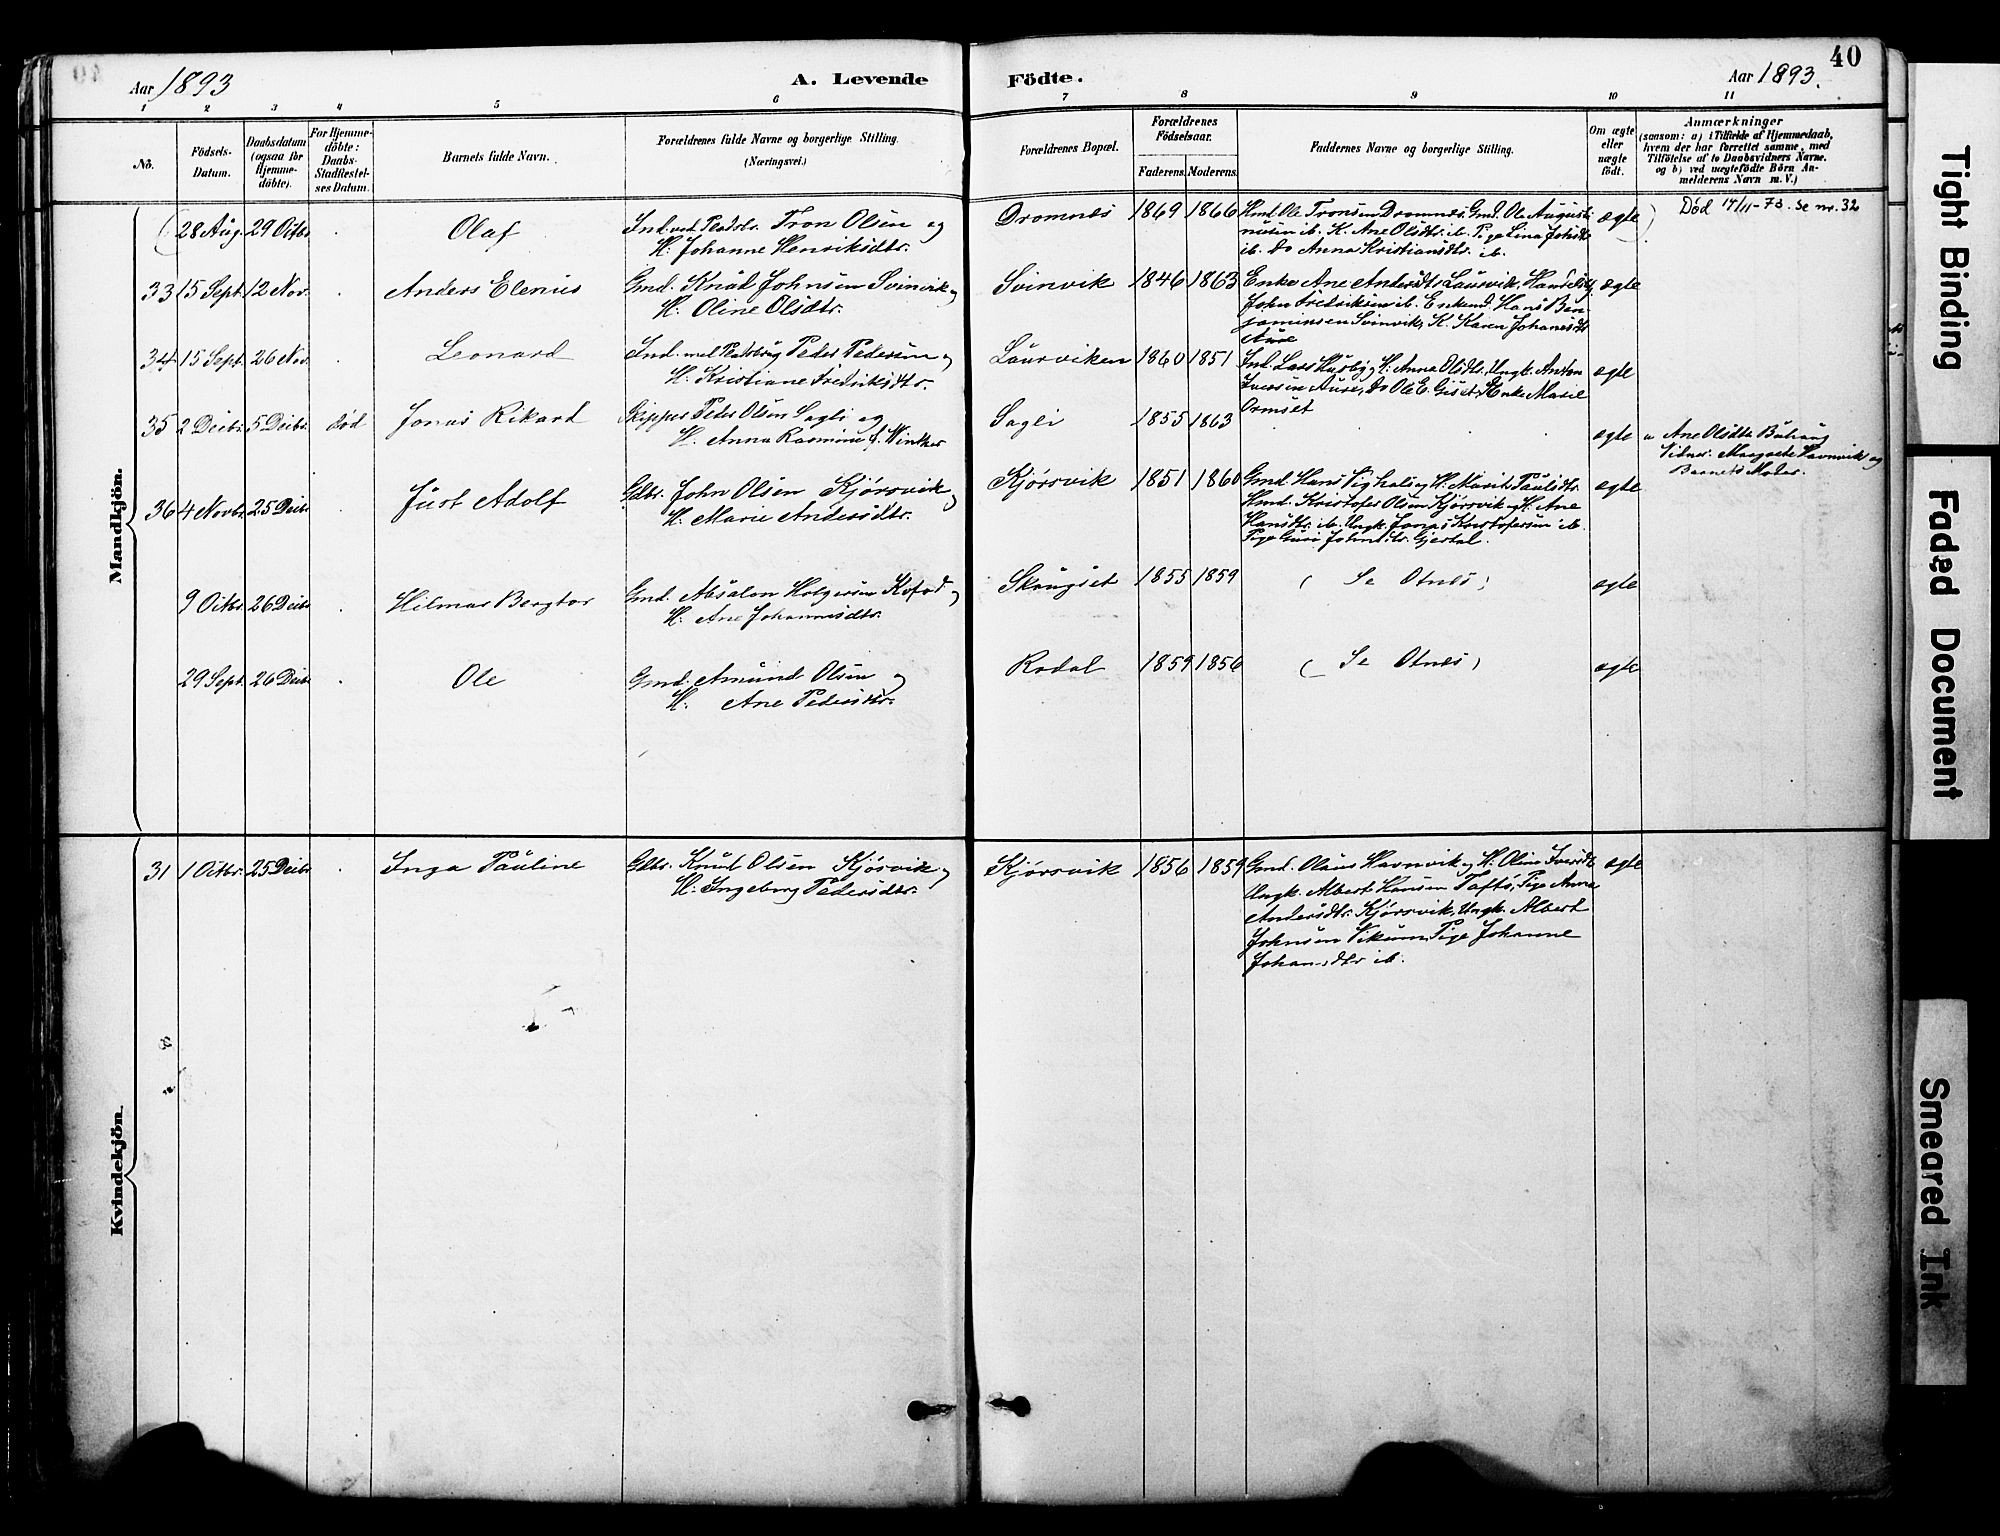 40
Aar 1893
A. Levende
Födte.
Aar 1893.
1 2 3 4 5 6 7 8 9 10 11
No.
Födsels-
Datum.
Daabsdatum
(ogsaa for
Hjemme-
döbte).
For Hjemme-
döbte:
Daabs-
Stadfestel-
ses Datum.
Barnets fulde Navn.
Forældrenes fulde Navne og borgerlige Stilling.
(Næringsvei.)
Forældrenes Bopæl.
Forældrenes
Födselsaar.
Faderens.
Moderens.
Faddernes Navne og borgerlige Stilling.
Om ægte
eller
uægte
födt.
Anmærkninger
(saasom: a) i Tilfælde af Hjemmedaab,
hvem der har forrettet samme, med
Tilföielse af to Daabsvidners Navne.
og b) ved uægtefödte Börn An-
melderens Navn m. V.)
Mandkjön.
28 Aug. 29 Octbr. Olaf
Ind. ved Pladsbr. Tron Olsen og
H. Johanne Henriksdtr.
Dromnæs 1869 1866
Hmd. Ole Tronsen Dromnæs. Gmd. Ole Augusti
nusen ib. K. Ane Olsdtr. ib. Pige Lina Johsdtr
ib. do Anna Kristiansdtr. ib.
ægte
Død 17/11-73. Se nr. 32
33 15 Sept. 12 Nov. Anders Elenius
Gmd. Knud Johnsen Svinvik og
H. Oline Olsdtr.
Svinvik 1846 1863
Enke Ane Andersdtr Laurvik.
John Fredriksen ib. Enkemd. Hans Ben
jaminsen Svinvik, K. Karen Johanesdtr
Aure
ægte
34 15 Sept. 26 Nov. Leonard
Ind. med Pladsbrug Peder Pedersen og
H. Kristiane Fredriksdtr.
Laurviken 1860 1851
Ind. Lars Husby og H. Anna Olsdtr. Ungk. Anton
Iversen Aure, do Ole E. Giset, Enke Marie
Ormset
ægte
35 2 Decbr. 5 Decbr. død Jonas Rikard
Skipper Peder Olsen Sagli og
H. Anna Rasmine f. Winther
Sagli 1855 1863
ægte
a Ane Olsdtr
Vidner. Margrete Havnvik og
Barnets Moder.
36 4 Novbr. 25 Decbr. Just Adolf
Gdbr. John Olsen Kjørsvik og
H. Marie Andersdtr.
Kjørsvik 1851 1860
Gmd Hans og H. Marit Paulsdtr.
Hmd. Kristofer Olsen Kjørsvik og H. Ane
Hansdtr. ib. Ungk. Jonas Kristofersen ib.
Pige Guri Johnsdtr. Gjerdal.
ægte
9 Octbr. 26 Decbr. Hilmar Bergtor
Gmd. Absalon Holgersen Kofod og
H. Ane Johannesdtr.
Skougset 1855 1859
( Se Otnes )
ægte
29 Sept. 26 Decbr. Ole
Gmd. Amund Olsen og
H. Ane Pedersdtr.
Rodal 1859 1856
( Se Otnes )
ægte
Kvindekjön.
31 1 Octbr. 25 Decbr. Inga Pauline
Gdbr. Knud Olsen Kjørsvik og
H. Ingeborg Pedersdtr.
Kjørsvik 1856 1859
Gmd. Olaus Havnvik og H. Olina Iversdtr
Ungk. Albert Hansen Tofts, Pige Anna
Andersdtr. Kjørsvik, Ungk. Albert
Johnsen Vikum, Pige Johanne
Johansdtr ib.
ægte
Tight Binding
Faded Document
Smeared Ink